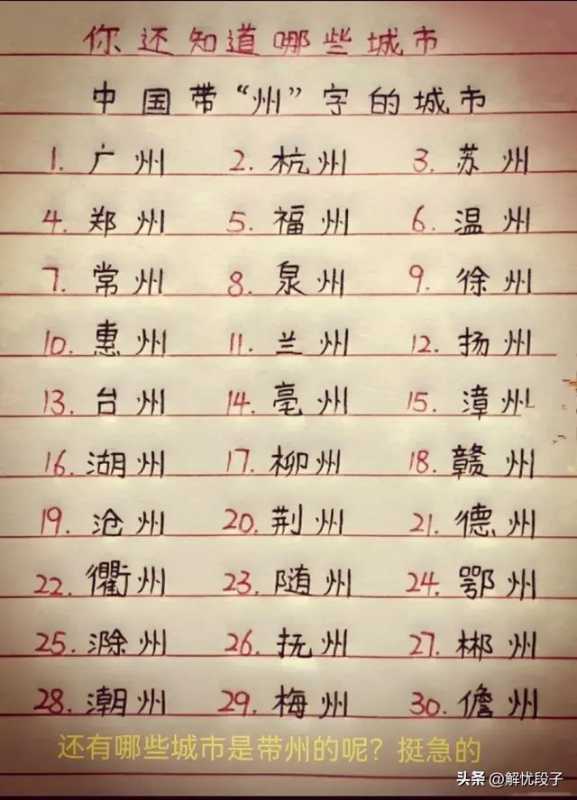 你还知道哪些城市
中国带“州”字的城市
1. 广州 2. 杭州 3. 苏州
4. 郑州 5. 福州 6. 温州
7. 常州 8. 泉州 9. 徐州
10. 惠州 11. 兰州 12. 扬州
13. 台州 14. 亳州 15. 漳州
16. 湖州 17. 柳州 18. 赣州
19. 沧州 20. 荆州 21. 德州
22. 衢州 23. 随州 24. 鄂州
25. 滁州 26. 抚州 27. 郴州
28. 潮州 29. 梅州 30. 儋州
还有哪些城市是带州的呢？挺急的
头条 @解忧段子